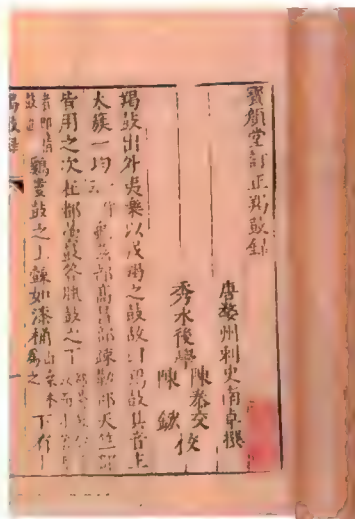 寶顏堂訂正羯鼓録
唐婺州刺史南卓撰
秀水後學陳泰交校
陳 欽
羯鼓出外夷樂以戎羯之鼓故曰羯鼓其音主
太蔟一均 部高昌部疎勒部天竺部
皆用之次在都曇鼓答臘鼓之下
雞婁鼓之上䫙如漆桶山桑木爲之下有
羯鼓録